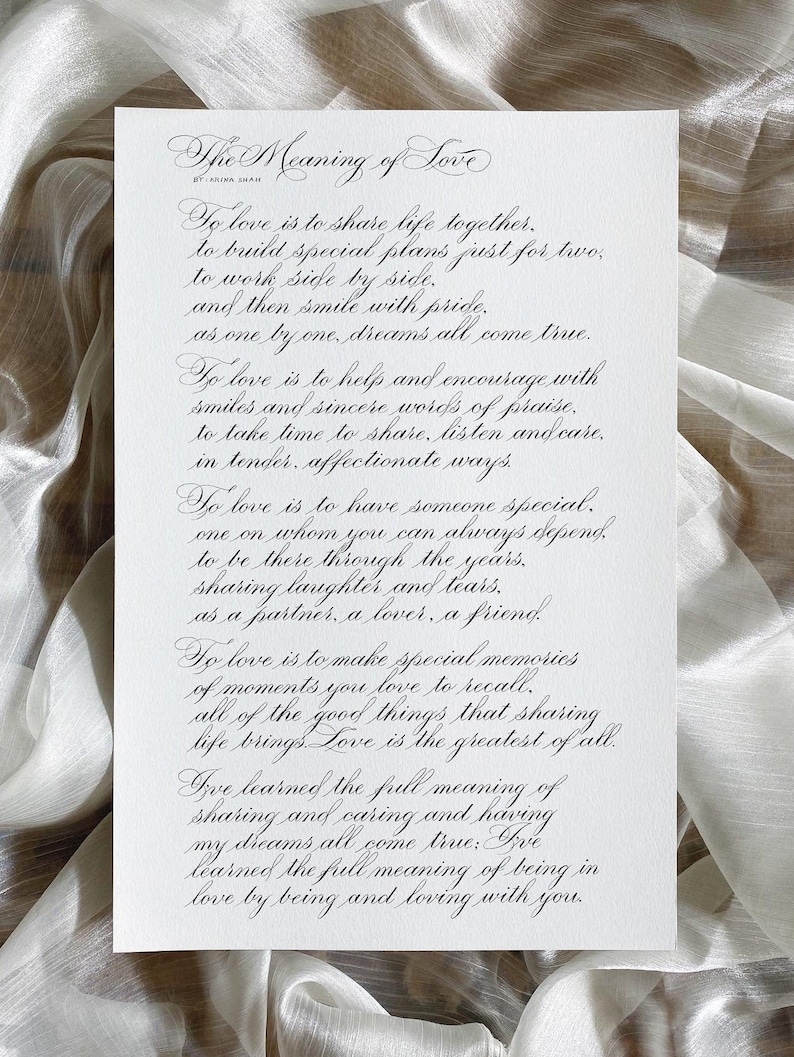 The Meaning of Love
BY: KRINA SHAH
To love is to share life together,
to build special plans just for two,
to work side by side,
and then smile with pride,
as one by one, dreams all come true.
To love is to help and encourage with
smiles and sincere words of praise,
to take time to share, listen and care,
in tender, affectionate ways.
To love is to have someone special,
one on whom you can always depend,
to be there through the years,
sharing laughter and tears,
as a partner, a lover, a friend.
To love is to make special memories
of moments you love to recall,
all of the good things that sharing
life brings. Love is the greatest of all.
I've learned the full meaning of
sharing and caring and having
my dreams all come true; I've
learned the full meaning of being in
love by being and loving with you.